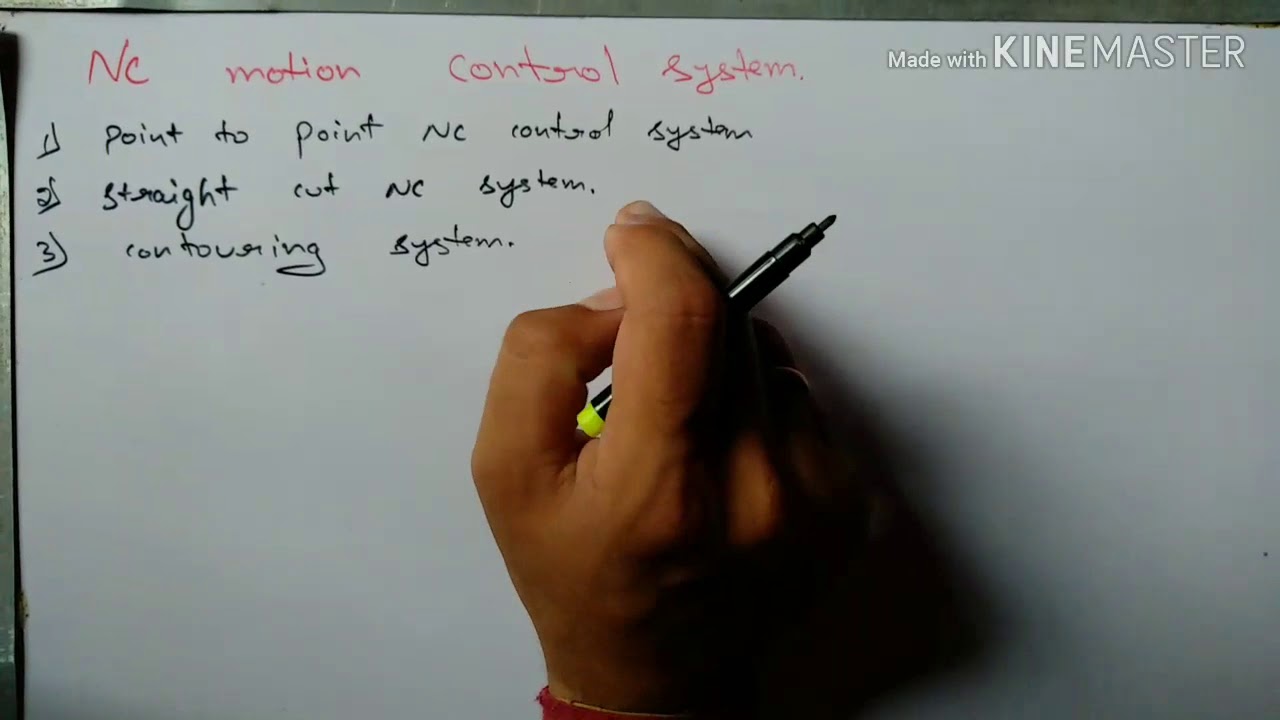 Nc motion control system.
Made with KINEMASTER
1) point to point NC control system
2) straight cut NC system.
3) contouring system.